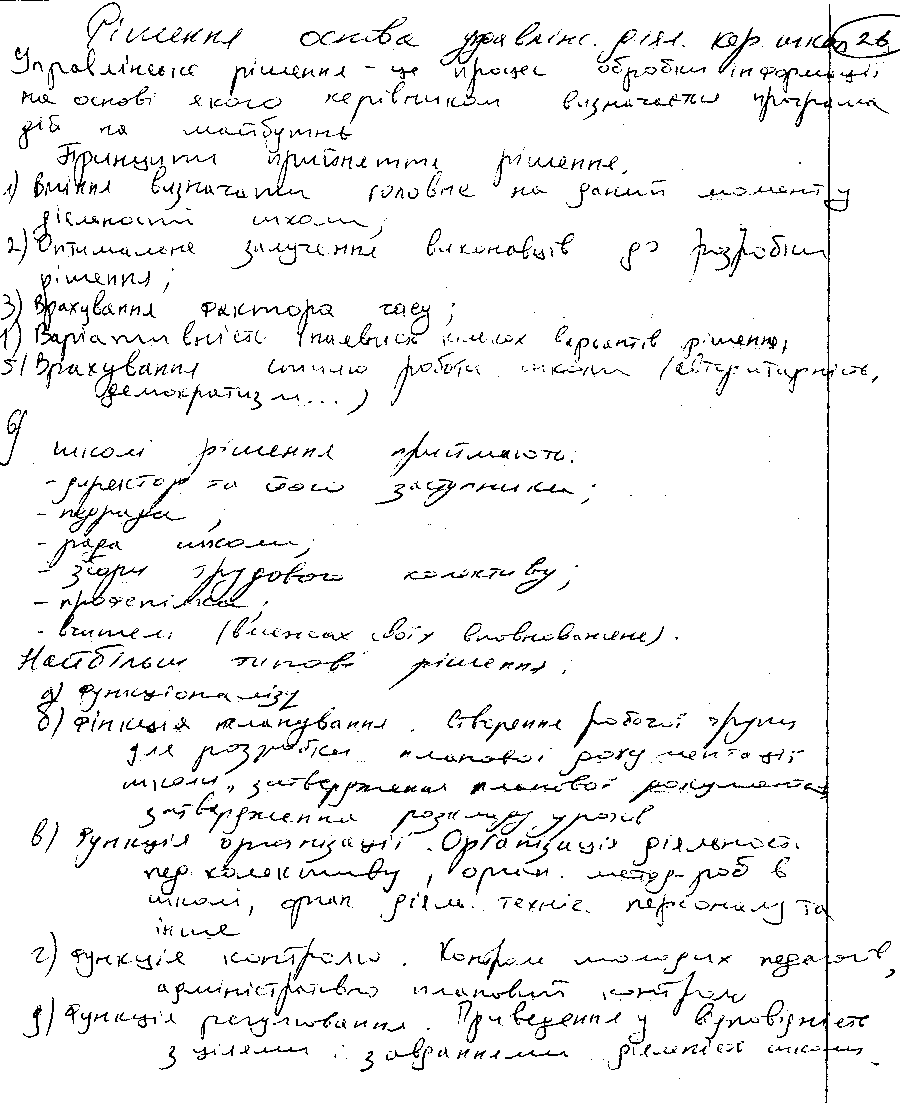 Рішення основа управлінс. діял. кер. школ 26
Управлінське рішення - це процес обробки інформації
на основі якого керівником визначається програма
дій на майбутнє
Принципи прийняття рішення.
1) Вміння визначати головне на даний момент у
діяльності школи;
2) Оптимальне залучення виконавців до розробки
рішення;
3) Врахування фактора часу;
4) Варіативність (наявність кількох варіантів рішення;
5) Врахування стилю роботи школи (авторитарність,
демократизм...)
В
школі рішення приймають:
- директор та його заступники;
- педрада;
- рада школи;
- збори трудового колективу;
- профспілка;
- вчителі (в межах своїх повноважень).
Найбільш типові рішення:
а) Функціоналізу
б) Фінкція планування. Створення робочої групи
для розробки планової документації
школи, затвердження планової документац
затвердження розкладу уроків
в) Функція організації. Організація діяльност.
пед. колективу, орган. метод. роб в
школі, орган. діял. техніч. персоналу та
інше
г) Функція контролю. Контроль молодих педагогів,
адміністративно плановий контроль
д) Функція регулювання. Приведення у відповідність
з цілями і завданнями діяльність школи.